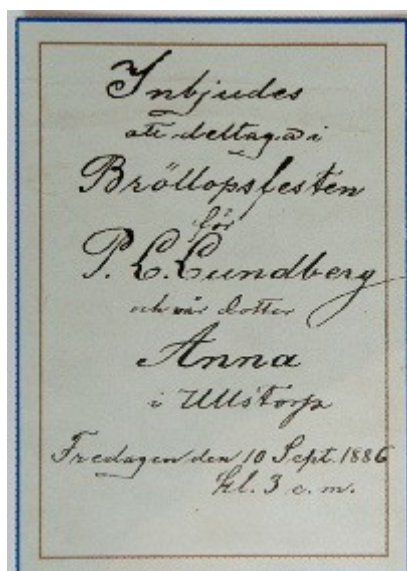 Inbjudes
att deltaga i
Bröllopsfesten
för
P. L. Lundberg
och vår dotter
Anna
i Ullstorp
Fredagen den 10 Sept. 1886
kl. 3 e. m.